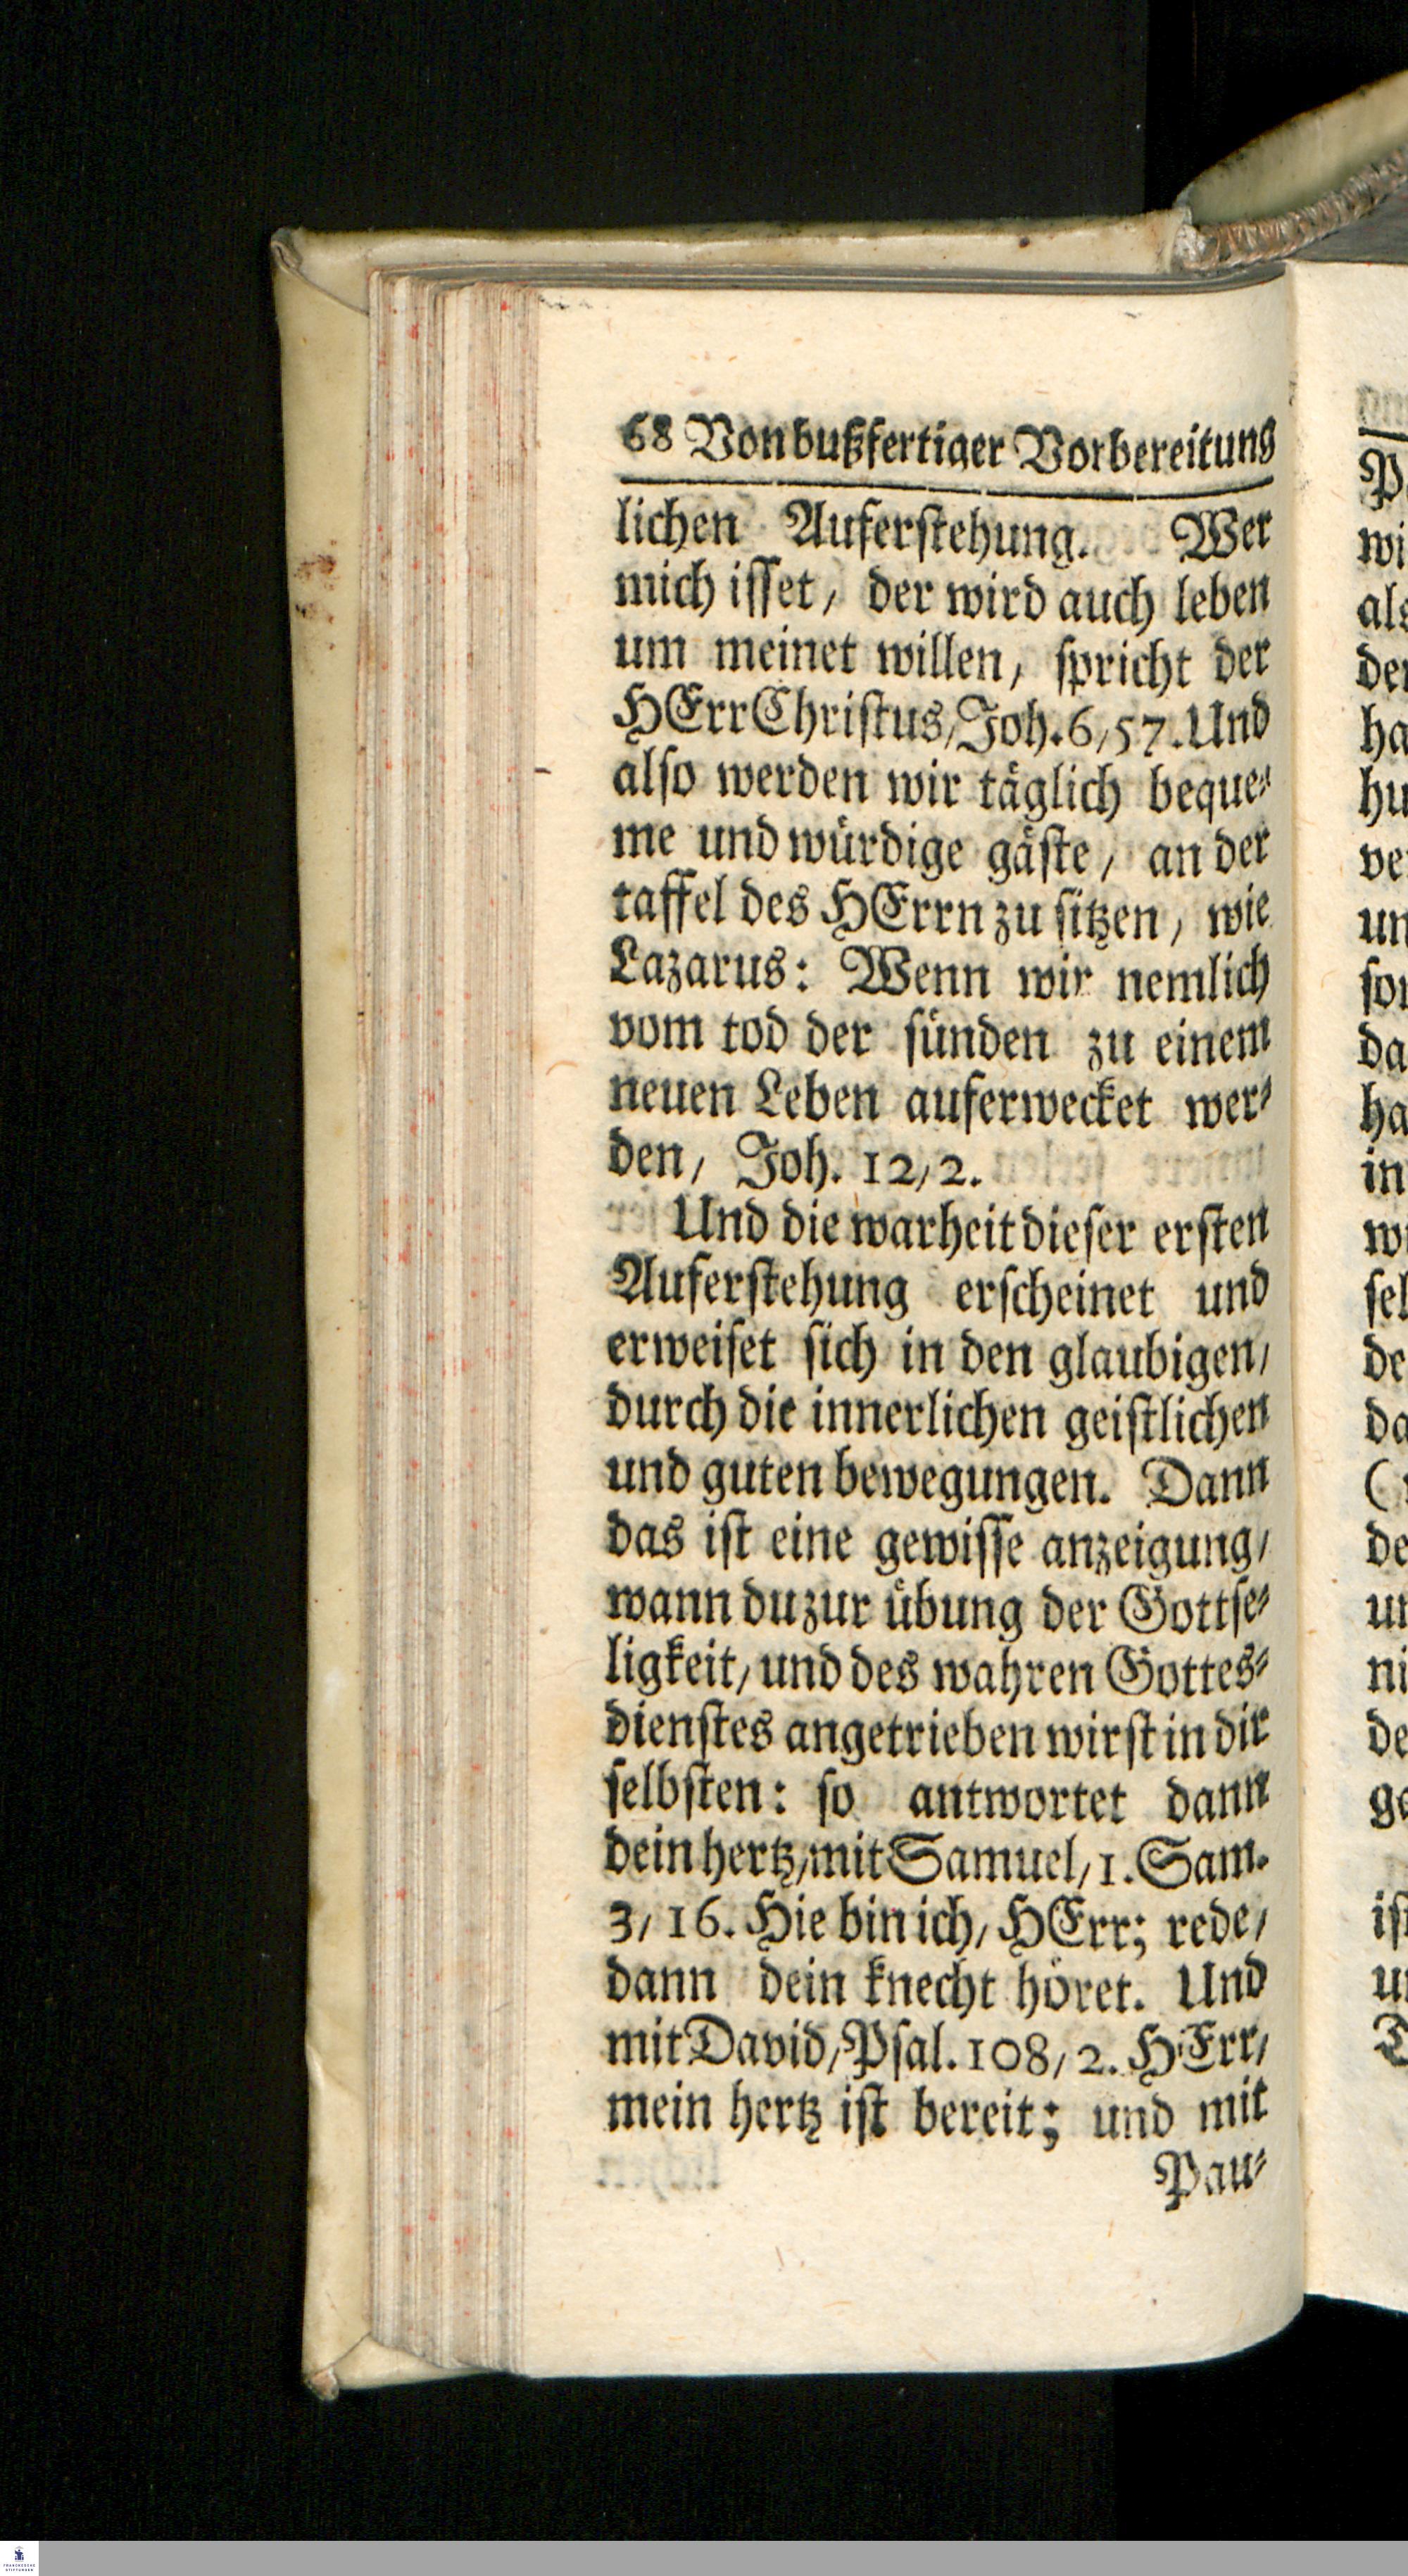 68 Von bußfertiger Vorbereitung
lichen Auferstehung. Wer
mich isset, der wird auch leben
um meinet willen, spricht der
HErr Christus, Joh. 6, 57. Und
also werden wir täglich beque-
me und würdige gäste, an der
taffel des HErrn zu sitzen, wie
Lazarus: Wenn wir nemlich
vom tod der sünden zu einem
neuen Leben auferwecket wer-
den, Joh. 12, 2.
Und die warheit dieser ersten
Auferstehung erscheinet und
erweiset sich in den glaubigen,
durch die innerlichen geistlichen
und guten bewegungen. Dann
das ist eine gewisse anzeigung,
wann du zur übung der Gottse-
ligkeit, und des wahren Gottes-
dienstes angetrieben wirst in dir
selbsten: so antwortet dann
dein hertz, mit Samuel, 1. Sam.
3, 16. Hie bin ich, HErr; rede,
dann dein knecht höret. Und
mit David, Psal. 108, 2. HErr,
mein hertz ist bereit; und mit
Pau-
FRANCKESCHE
STIFTUNGEN